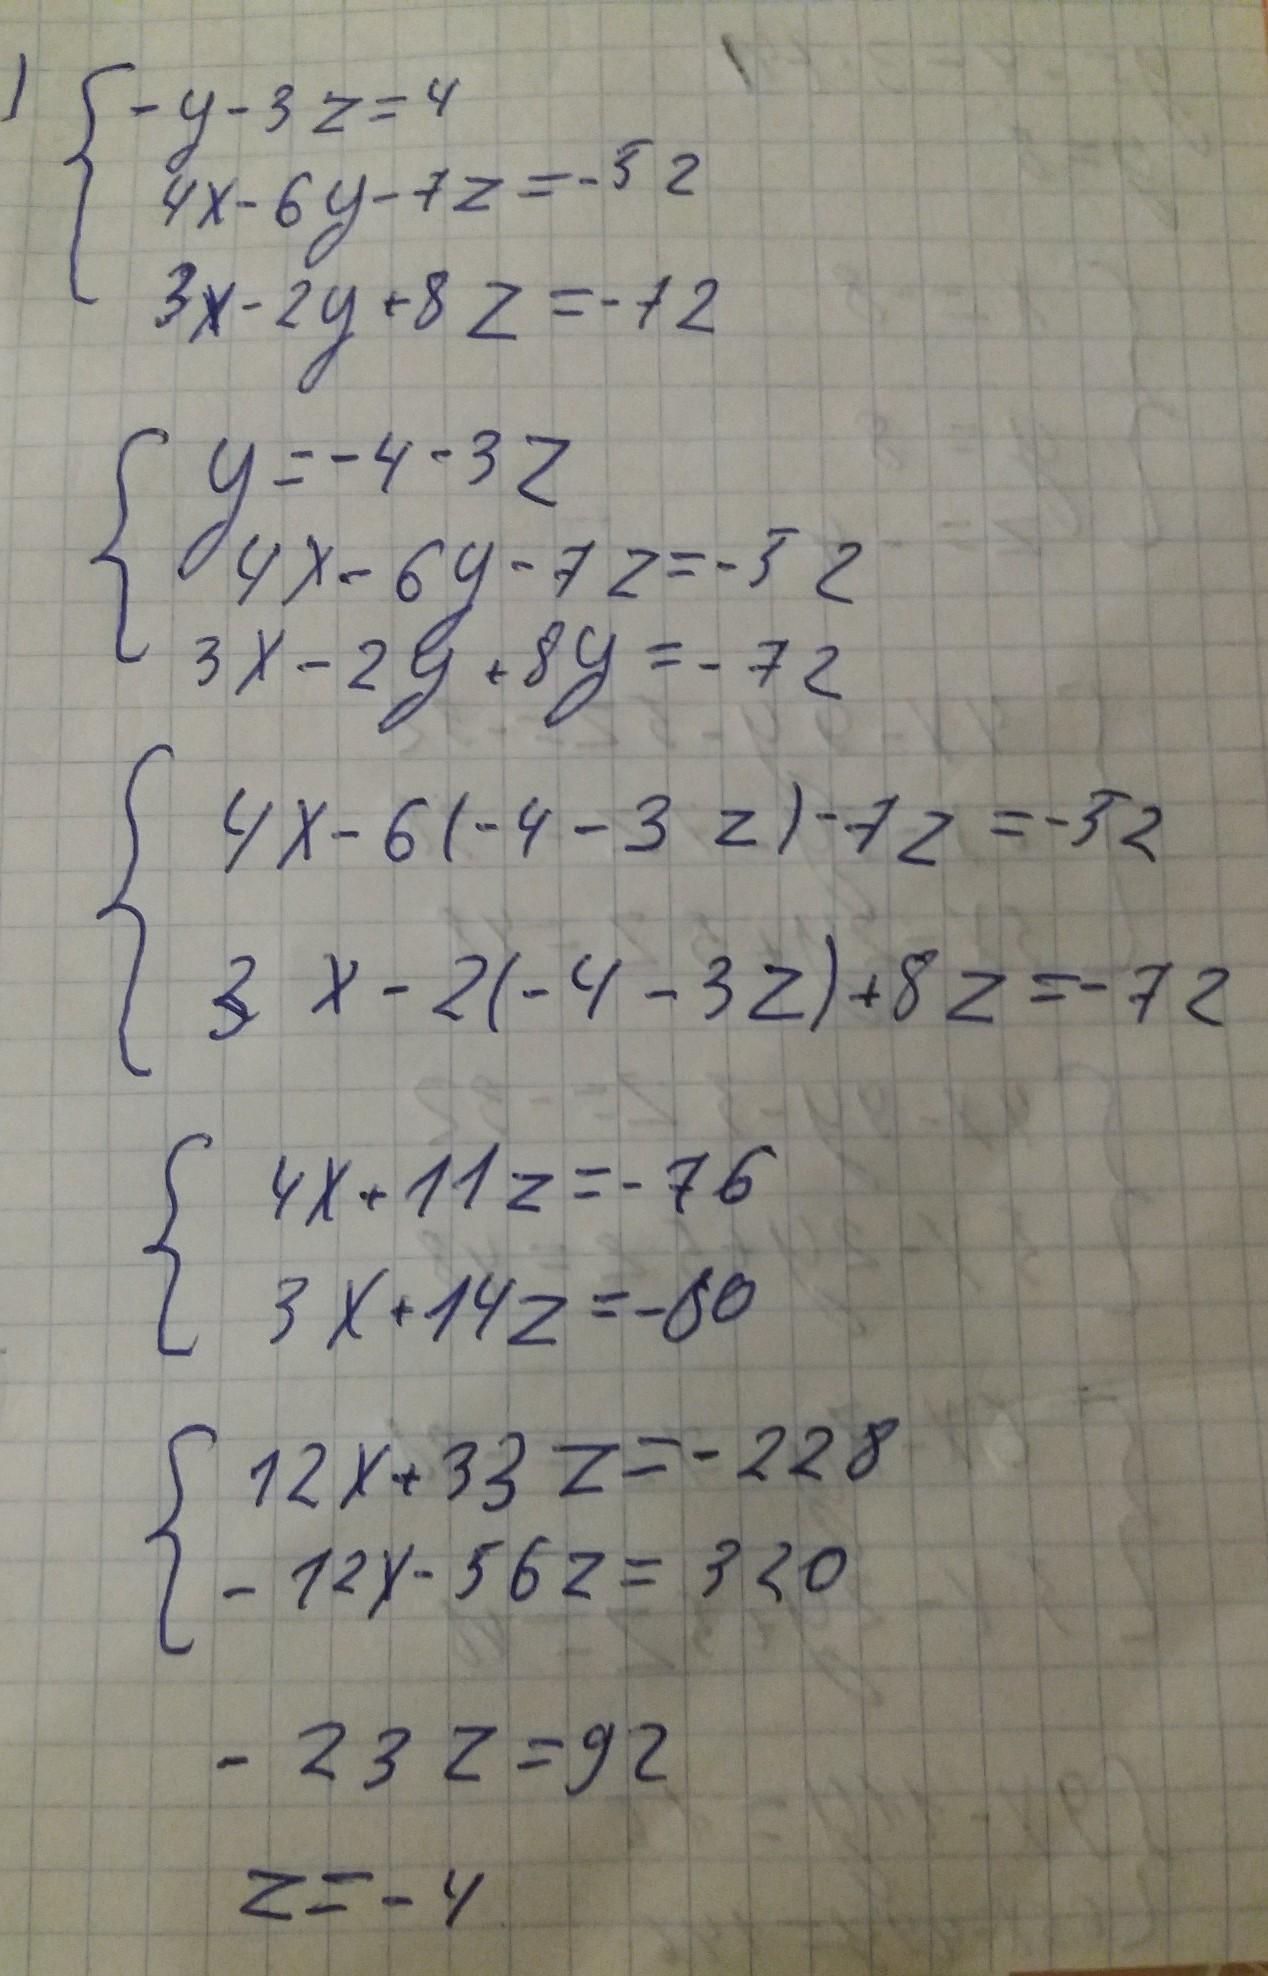 1) -y-3z=4
4x-6y-7z=-52
3x-2y+8z=-72
y=-4-3z
4x-6y-7z=-52
3x-2y+8y=-72
4x-6(-4-3z)-7z=-52
3x-2(-4-3z)+8z=-72
4x+11z=-76
3x+14z=-80
12x+33z=-228
-12x-56z=320
-23z=92
z=-4